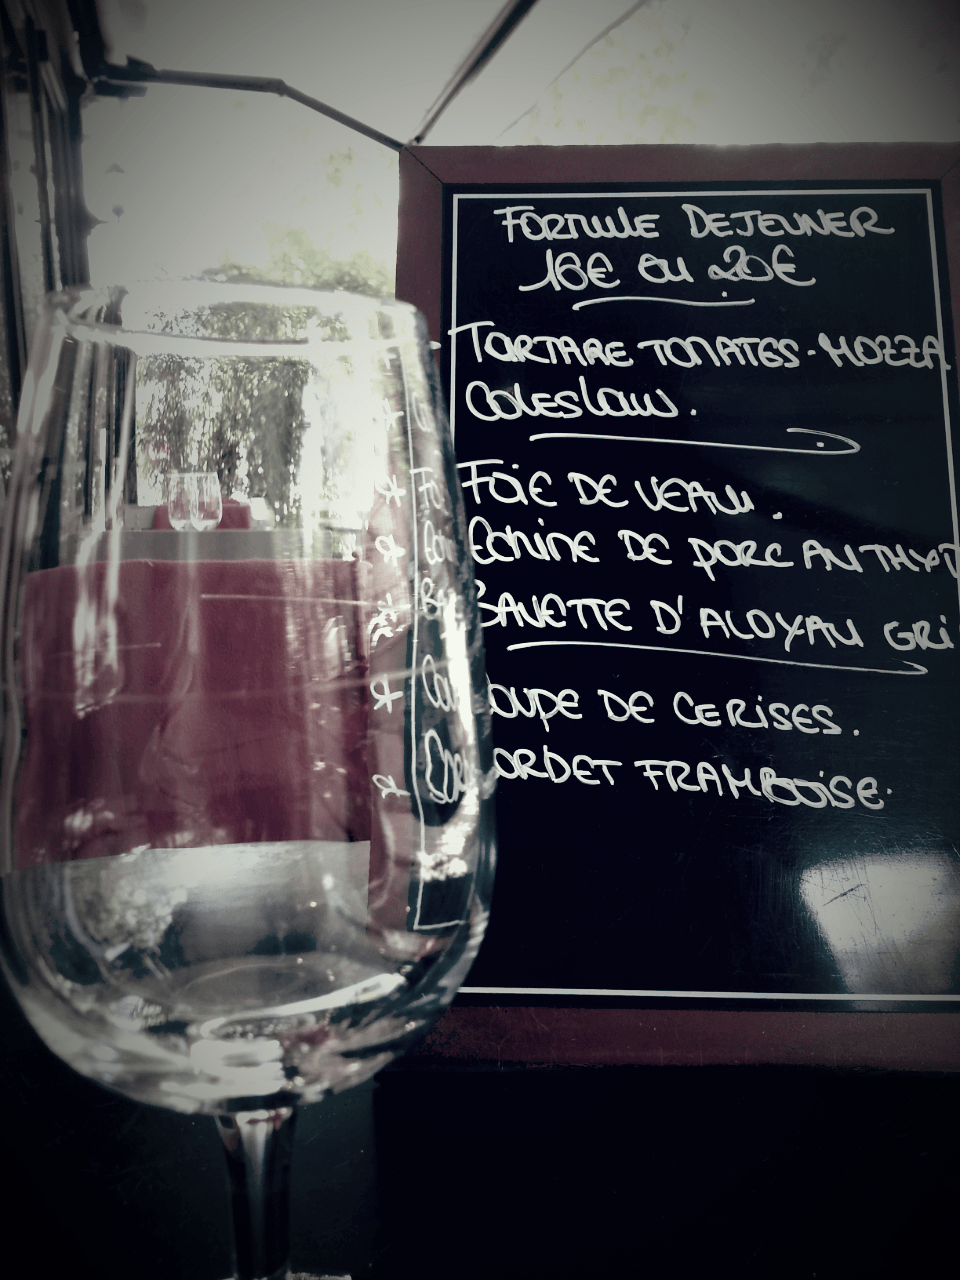 FORMULE DEJEUNER
16€ ou 20€
TARTARE TOMATES - MOZZA
Coleslaw.
FOIE DE VEAU.
ECHINE DE PORC AU THY
BAVETTE D'ALOYAU GRI
COUPE DE CERISES.
SORBET FRAMBOISE.